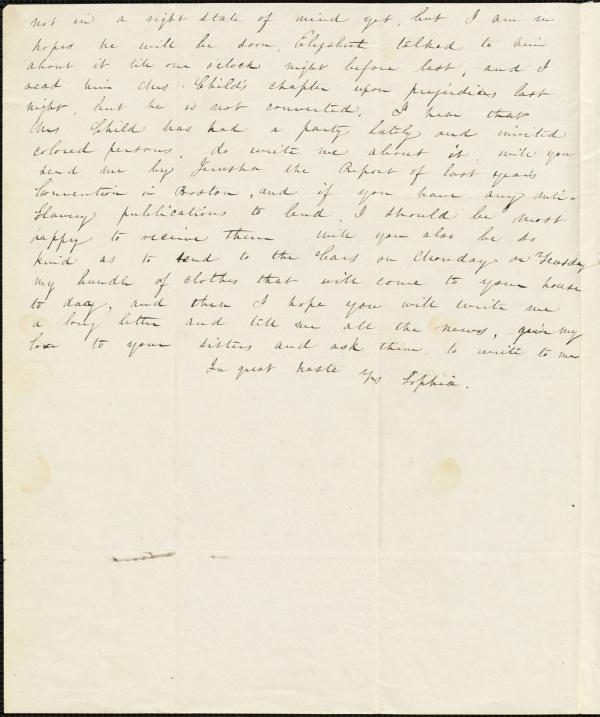 not in a right state of mind yet, but I am in
hopes he will be soon, Elizabeth talked to him
about it till one o'clock night before last, and I
read him Mrs. Child's chapter upon prejudices last
night, but he is not converted. I hear that
Mrs Child has had a party lately and invited
colored persons, do write me about it, will you
send me by Jerusha the Report of last years
Convention in Boston, and if you have any anti-
Slavery publications to lend, I should be most
happy to receive them will you also be so
kind as to send to the Cars on Monday or Tuesday
my bundle of clothes that will come to your house
to day, and then I hope you will write me
a long letter and tell me all the news, give my
love to your sisters and ask them to write to me
In great haste Yrs Sophia.